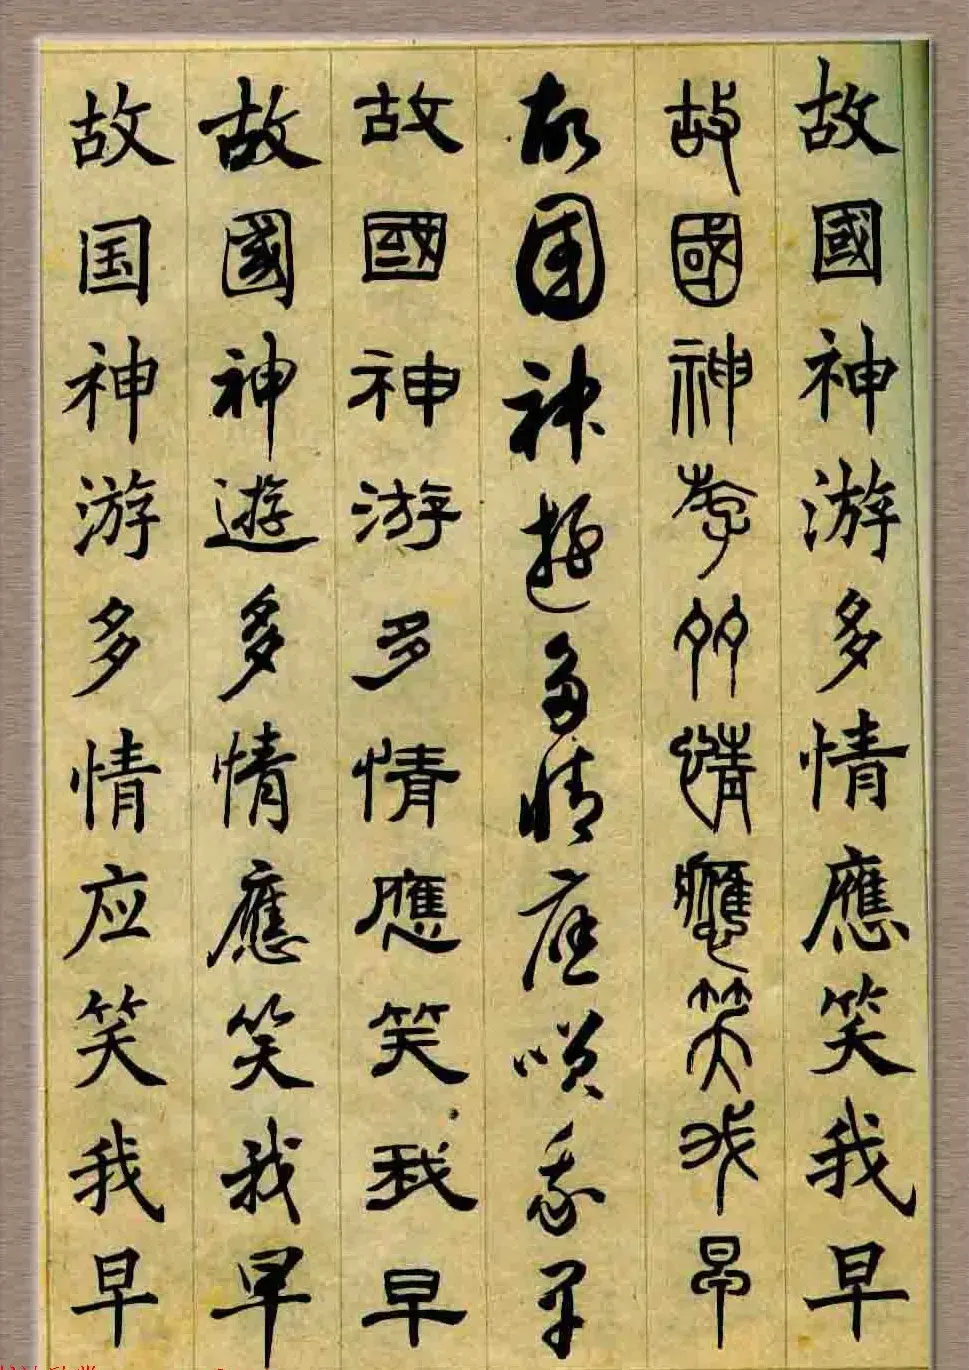 故國神游多情應笑我早
故國神斿多情應笑我早
故國神遊多情應笑我早
故國神游多情應笑我早
故國神遊多情應笑我早
故国神游多情应笑我早